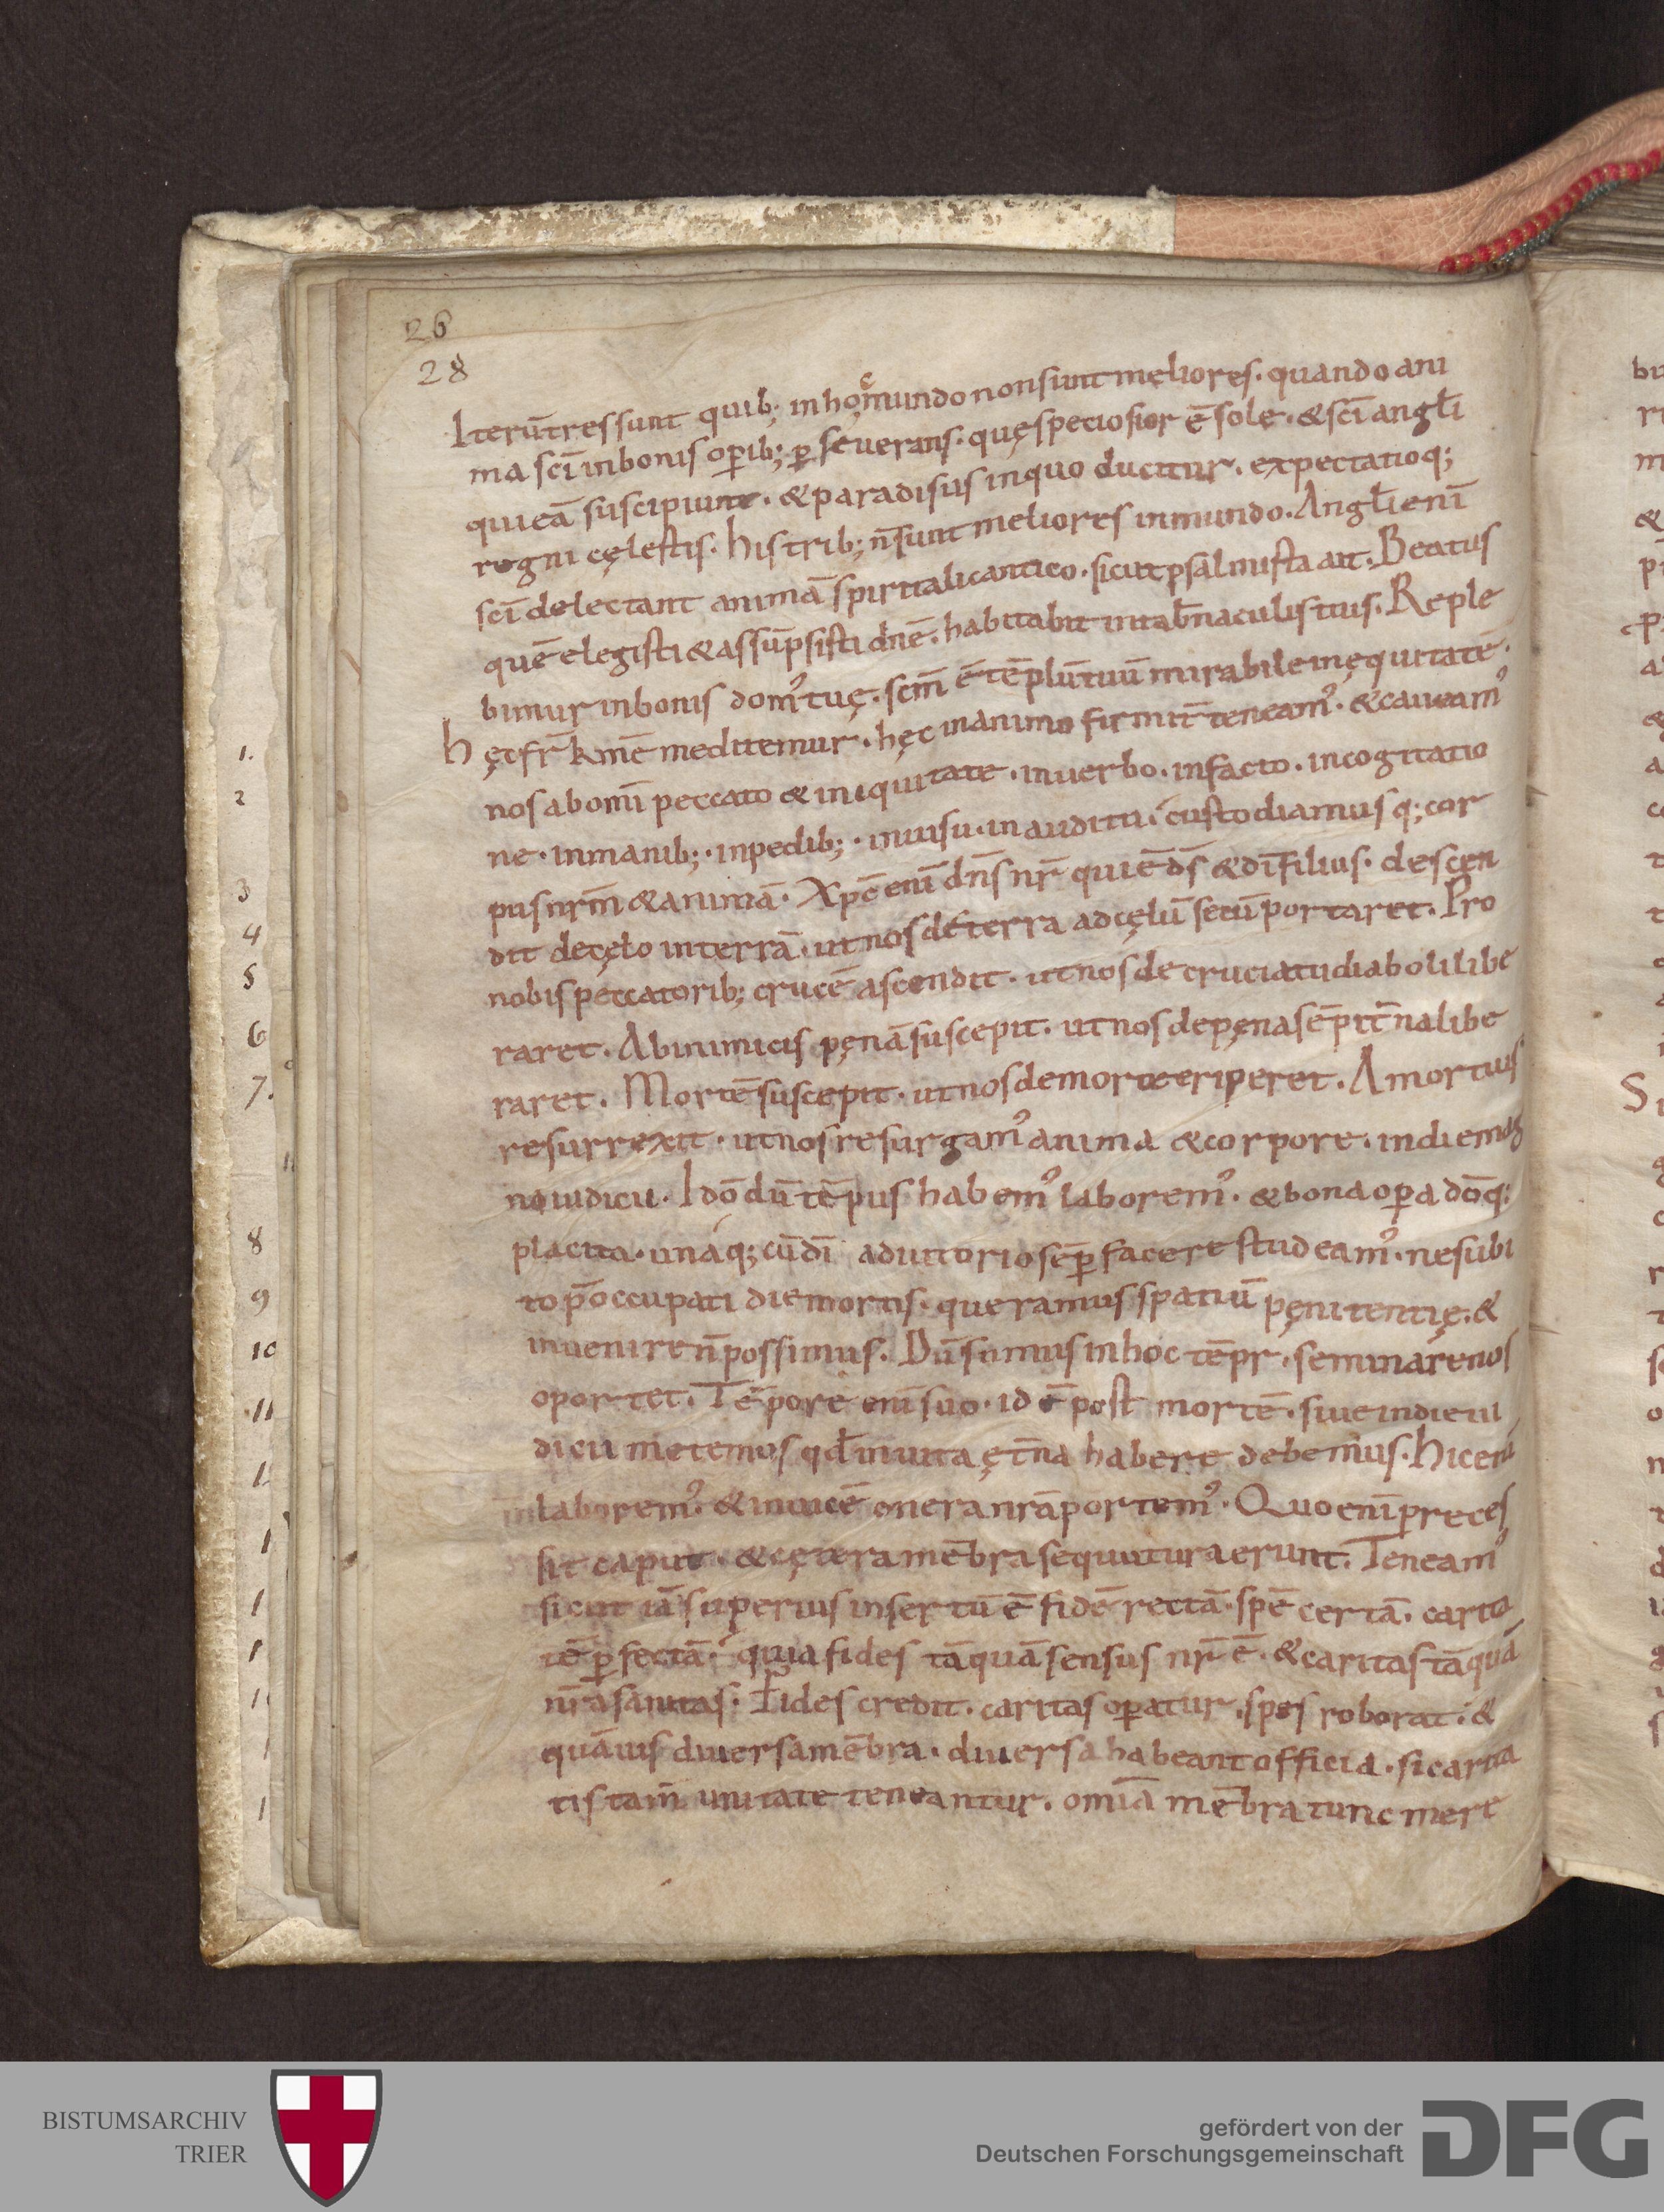 26
28
Iterū tres sunt quib; in hoc mundo non sunt meliores · quando ani
ma sc̄i in bonis op̄ib; p̱seuerans · quę speciosior ē sole · & sc̄i angl̄i
qui eā suscipiunt · & paradisus in quo ducitur · expectatioq;
regni cęlestis · his trib; n̄ sunt meliores in mundo · Angl̄i enī
sc̄i delectant animā spiritali cantico · sicut psalmista ait · Beatus
quē elegisti & assūpsisti dn̄e · habitabit in tab̄naculis tuis · Reple
bimur in bonis dom᾽ tuę · sc̄m ē tēplū tuū mirabile in ęquitate ·
hęc fr̄ k̄mē meditemur · hęc in animo firmit̄ teneam᾽ · & caueam᾽
nos ab omī peccato & iniquitate · in uerbo · in facto · in cogitatio
ne · in manib; · in pedib; · in uisu · in auditu · custodiamusq; cor
pus nr̄m & animā · Xp̄c enī dn̄s nr̄ qui ē d̄s & dī filius · descen
dit de cęlo in terrā · ut nos de terra ad cęlū secū portaret · Pro
nobis peccatorib; crucē ascendit · ut nos de cruciatu diaboli libe
raret · Ab inimicis pęnā suscepit · ut nos de pęna sēpit̄na libe
raret · Mortē suscepit · ut nos de morte eriperet · A mortuis
resurrexit · ut nos resurgam᾽ anima & corpore · in die mag
no iudicii · Idō dū tēpus habem᾽ laborem᾽ · & bona op̱a dōq;
placita · unaq; cū dī adiutorio sēp̱ facere studeam᾽ · ne subi
to p̄occupati die mortis · queramus spatiū pęnitentię · &
inuenire n̄ possimus · Dū sumus in hoc tēpr · seminare nos
oportet · Tēpore enī suo · id ē post mortē · siue in die iu
dicii metemus qd̄ in uita ęt̄na habere debemus · hic enī
laborem᾽ · & inuicē onera nr̄a portem᾽ · Quo enī preces
sit caput · & cętera mēbra sequutura erunt · Teneam᾽
sicut iā superius insertū ē fidē rectā · spē certā · carita
tē p̱fectā · quia fides tāquā sensus nr̄ ē · & caritas tāquā
nr̄a sanitas · Fides credit · caritas op̱atur · spes roborat · &
quāuis diuersa mēbra · diuersa habeant officia · si carita
tis tam̄ unitate teneantur · omīa mēbra tunc mere
1.
2
3
4
5
6
7.
8
9
10
11
BISTUMSARCHIV
TRIER
gefördert von der
Deutschen Forschungsgemeinschaft
DFG